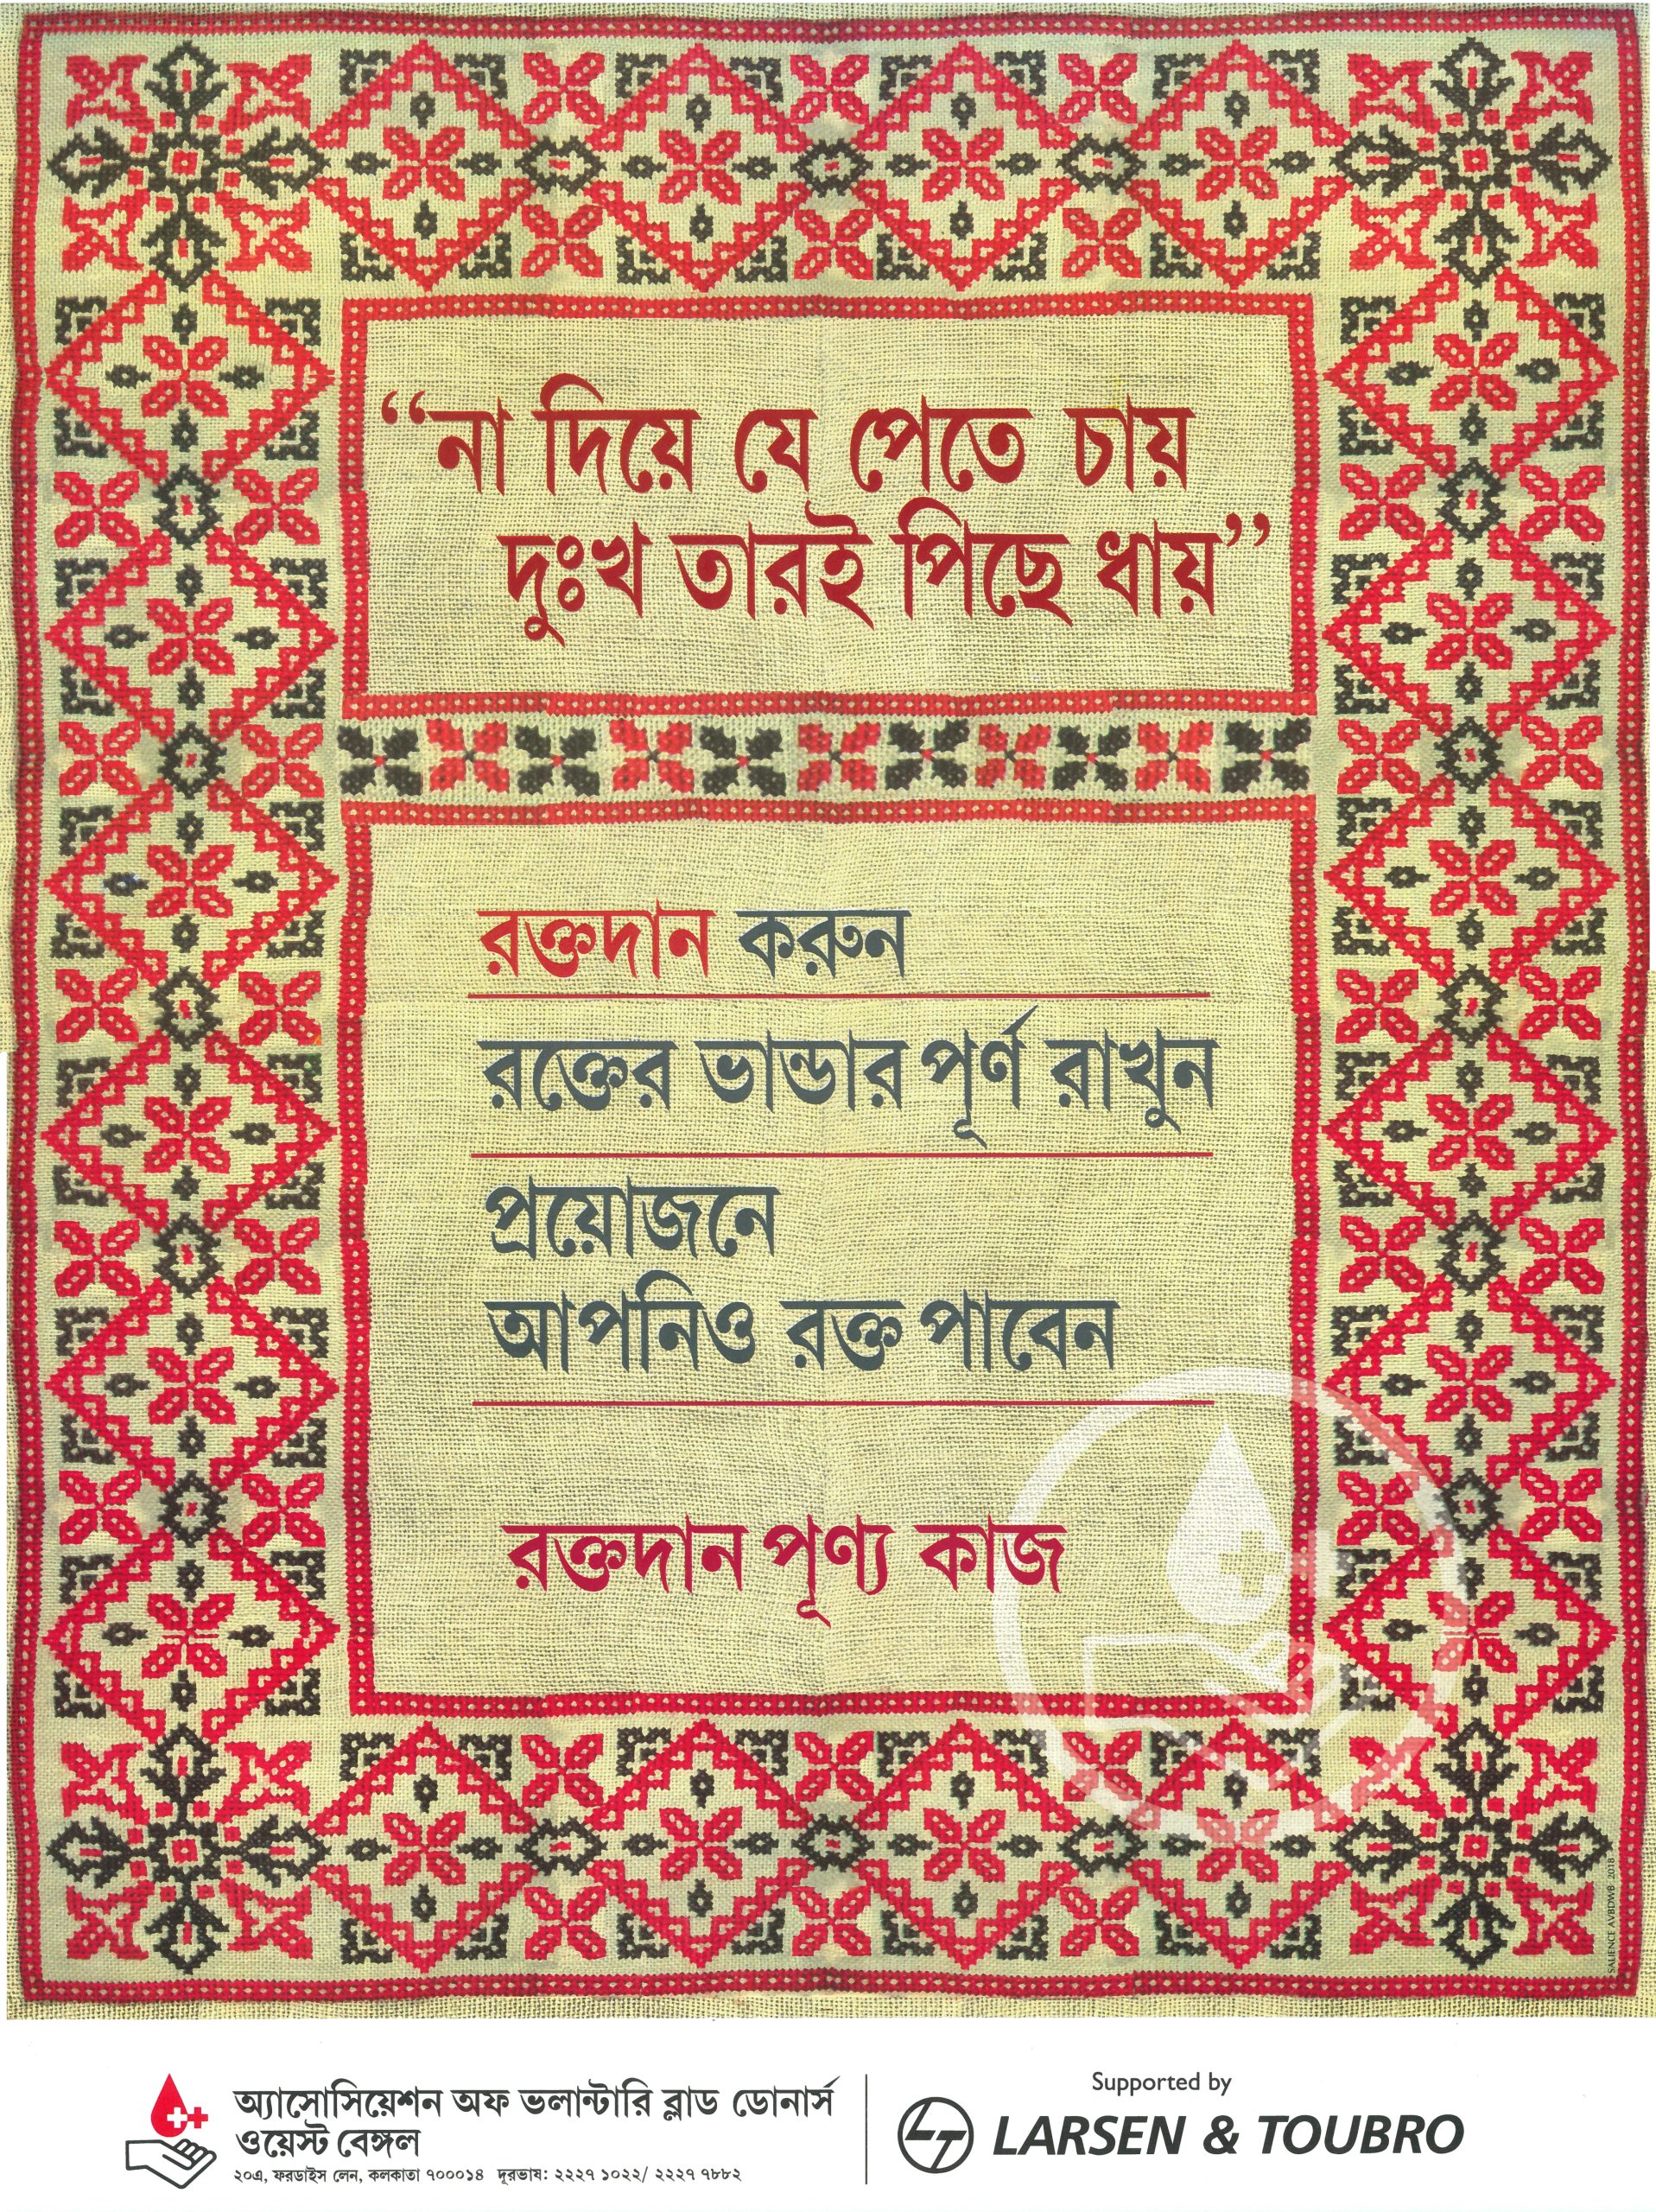 “না দিয়ে যে পেতে চায়
দুঃখ তারই পিছে ধায়”
রক্তদান করুন
রক্তের ভান্ডার পূর্ণ রাখুন
প্রয়োজনে
আপনিও রক্ত পাবেন
রক্তদান পূণ্য কাজ
SALIENCE AVBDWB 2018
অ্যাসোসিয়েশন অফ ভলান্টারি ব্লাড ডোনার্স
ওয়েস্ট বেঙ্গল
২০এ, ফরডাইস লেন, কলকাতা ৭০০০১৪ দূরভাষ: ২২২৭ ১০২২/ ২২২৭ ৭৮৮২
Supported by
LARSEN & TOUBRO